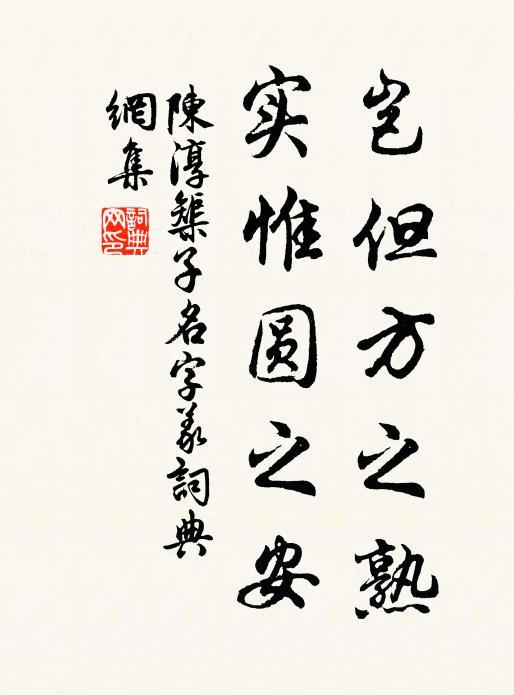 岂但方之熟
实惟圆之安
陳淳榘子名字義詞典
網集
詞典
网印